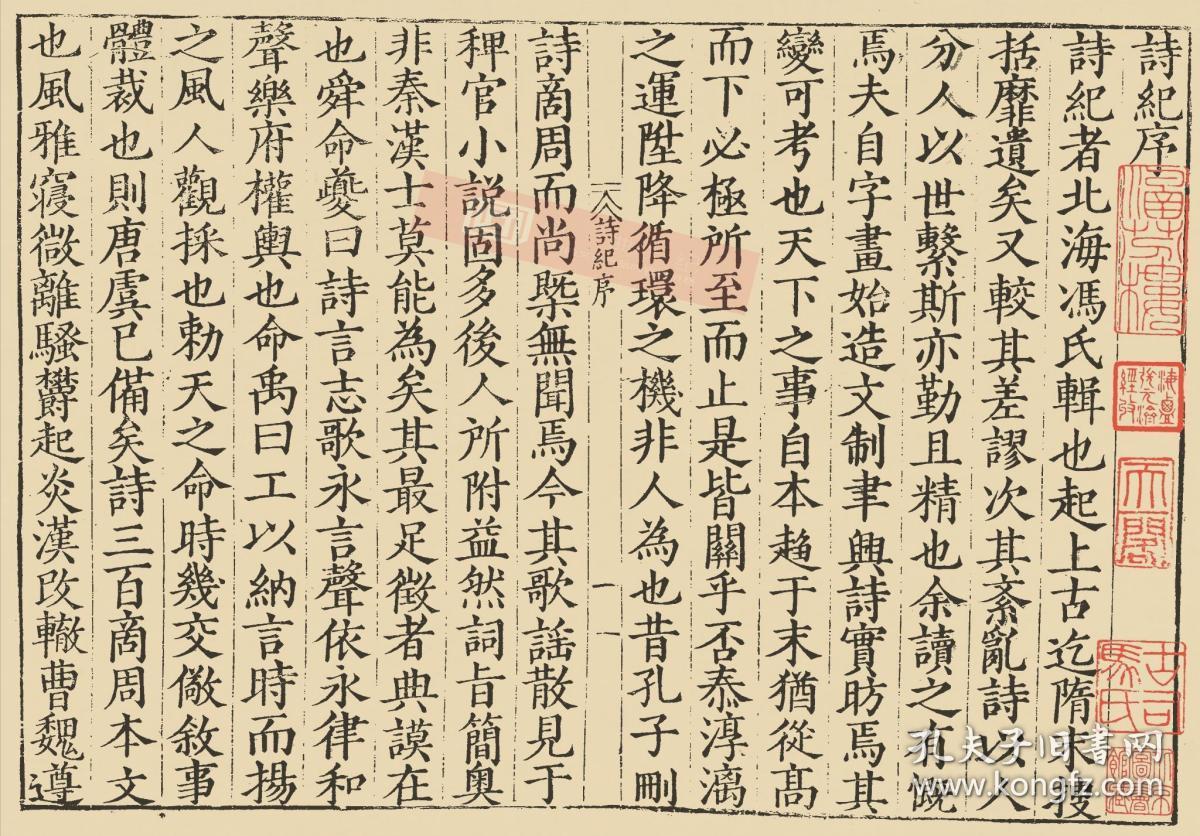 詩紀序
詩紀者北海馮氏輯也起上古迄隋末摟
括靡遺矣又較其差謬次其紊亂詩以人
分人以世繫斯亦勤且精也余讀之有慨
焉夫自字畫始造文制聿興詩實昉焉其
變可考也天下之事自本趋于末猶從髙
而下必極所至而止是皆關乎否泰淳漓
之運陞降循環之機非人為也昔孔子刪
詩紀序
一
詩商周而尚槩無聞焉今其歌謡散見于
稗官小說固多後人所附益然詞旨簡奥
非秦漢士莫能為矣其最足徴者典謨在
也舜命夔曰詩言志歌永言聲依永律和
聲樂府權輿也命禹曰工以納言時而揚
之風人觀採也勅天之命時幾交儆敘事
體裁也則唐虞已備矣詩三百商周本文
也風雅寖微離騷欝起炎漢改轍曹魏遵
涵芬樓
海鹽
張元濟
經收
孔夫子旧书网
www.kongfz.com